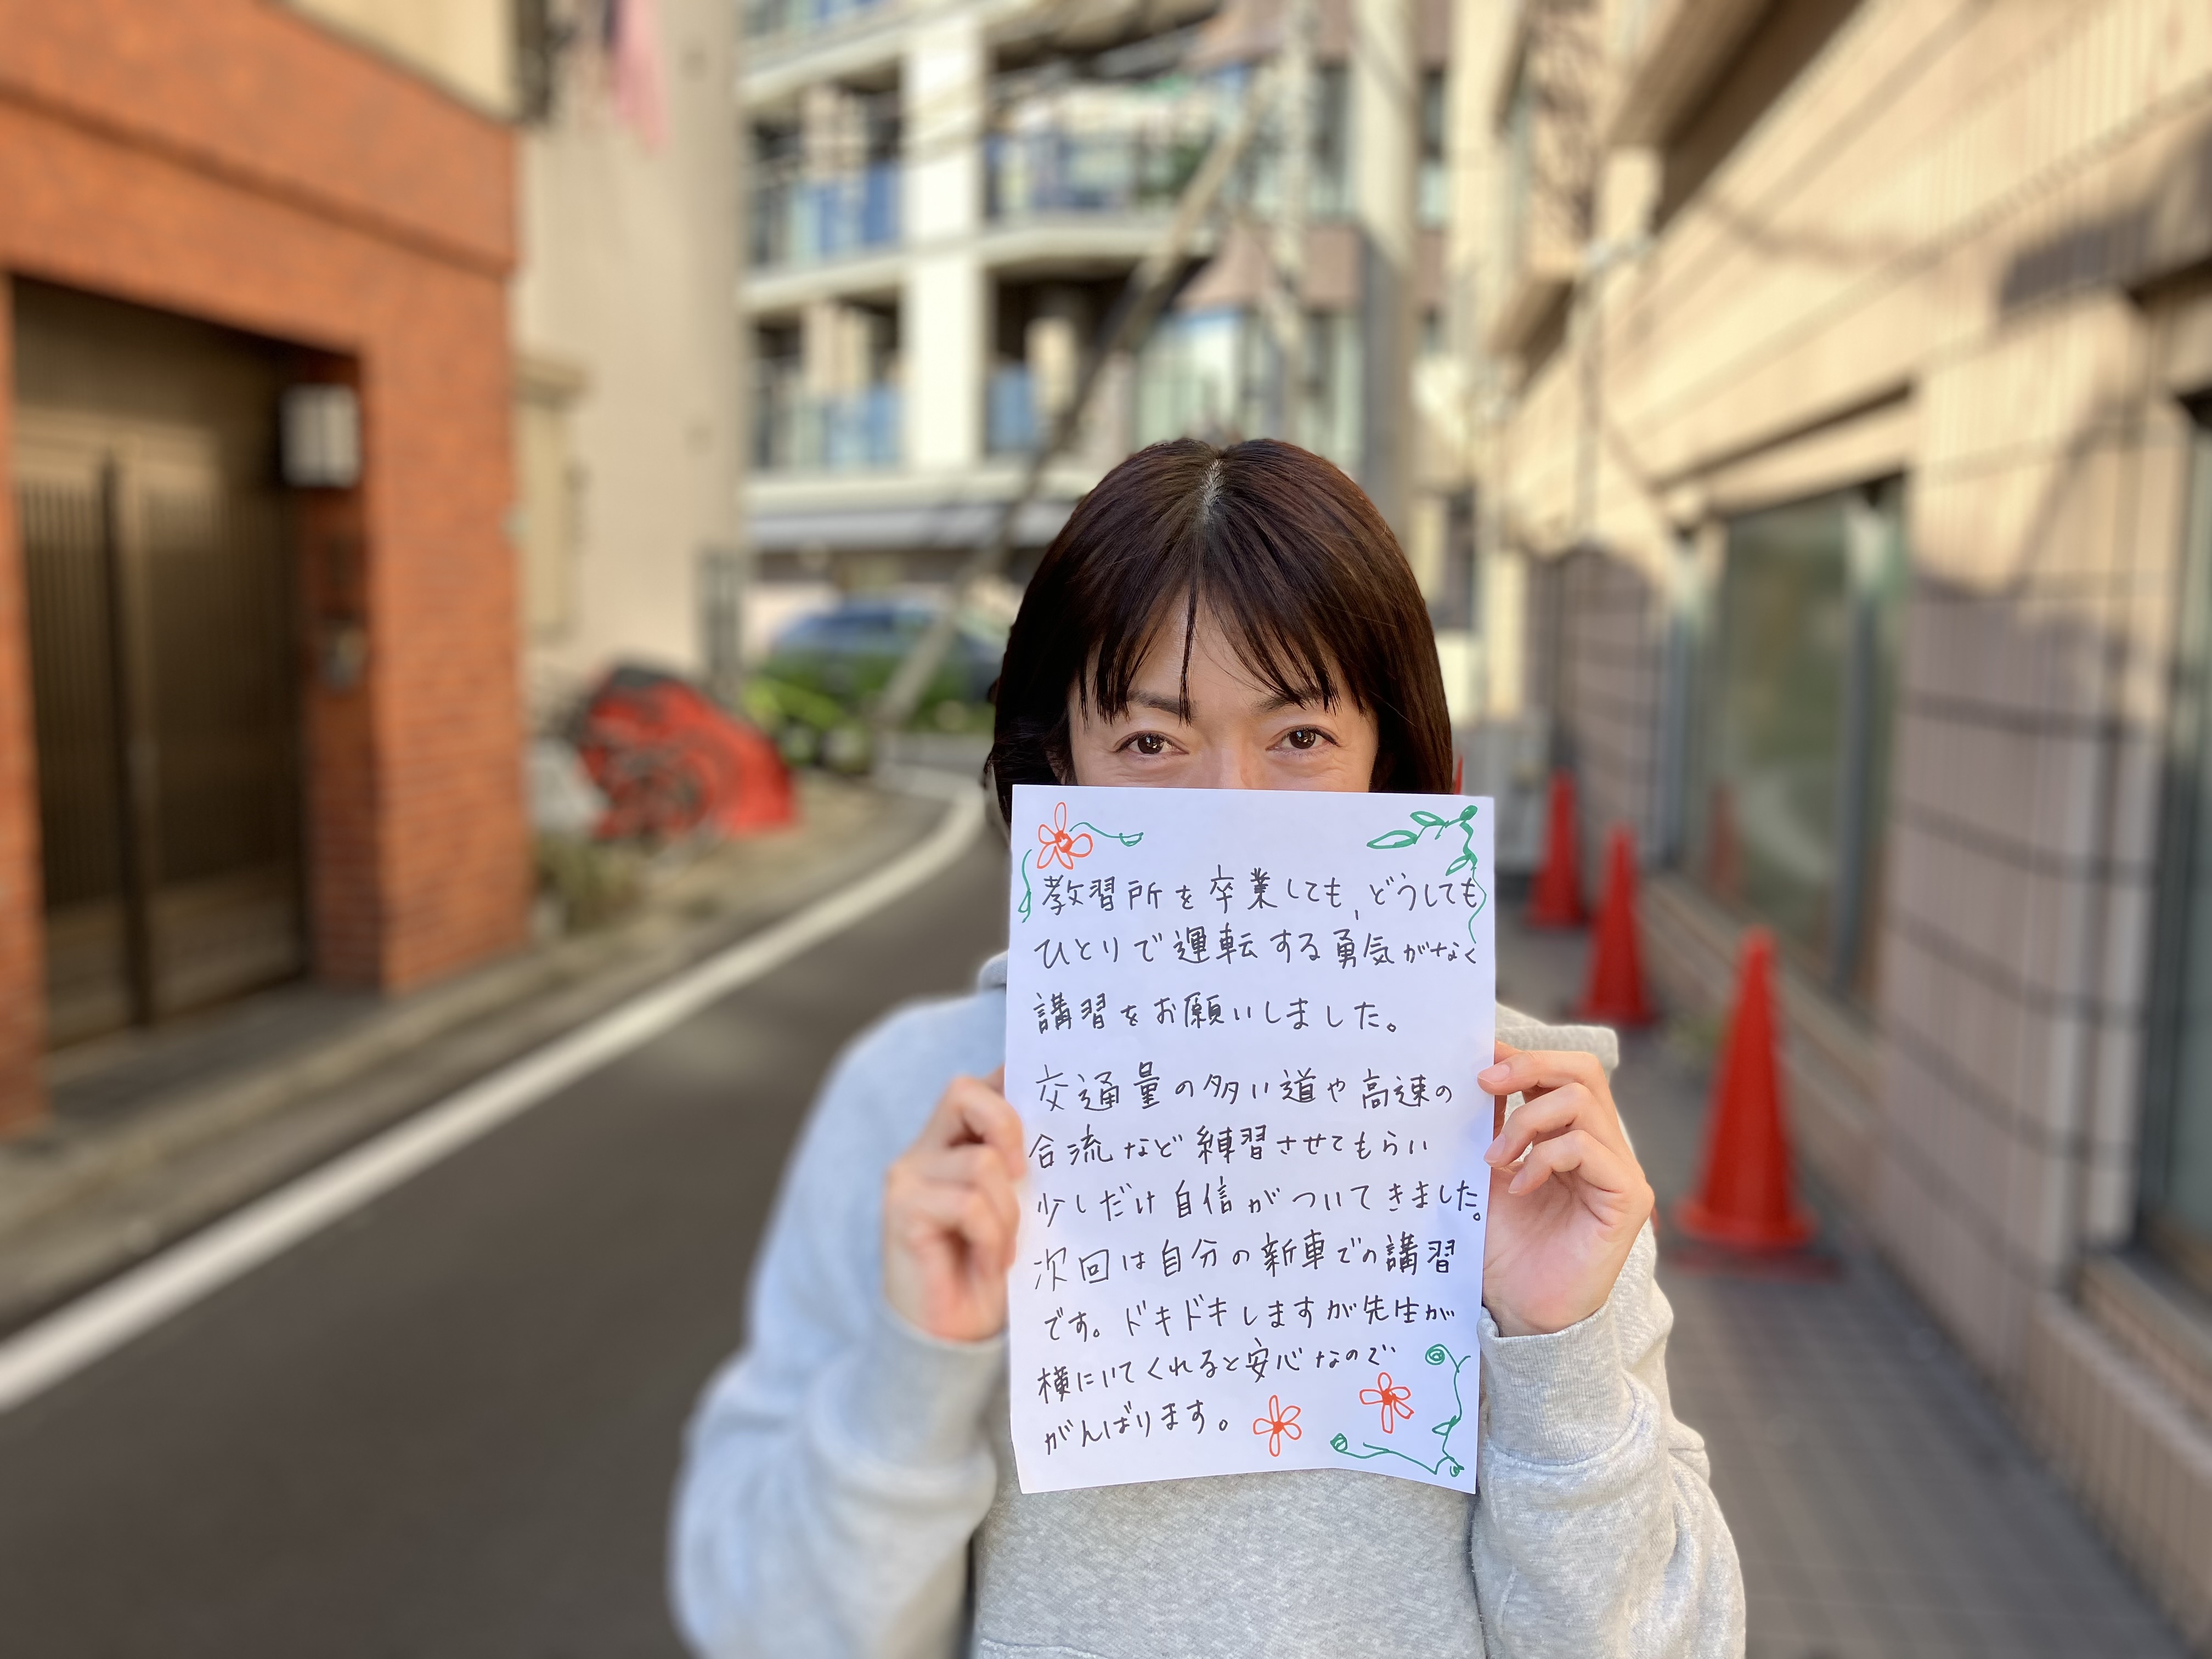 教習所を卒業しても、どうしても
ひとりで運転する勇気がなく
講習をお願いしました。
交通量の多い道や高速の
合流など練習させてもらい
少しだけ自信がついてきました。
次回は自分の新車での講習
です。ドキドキしますが先生が
横にいてくれると安心なので
がんばります。